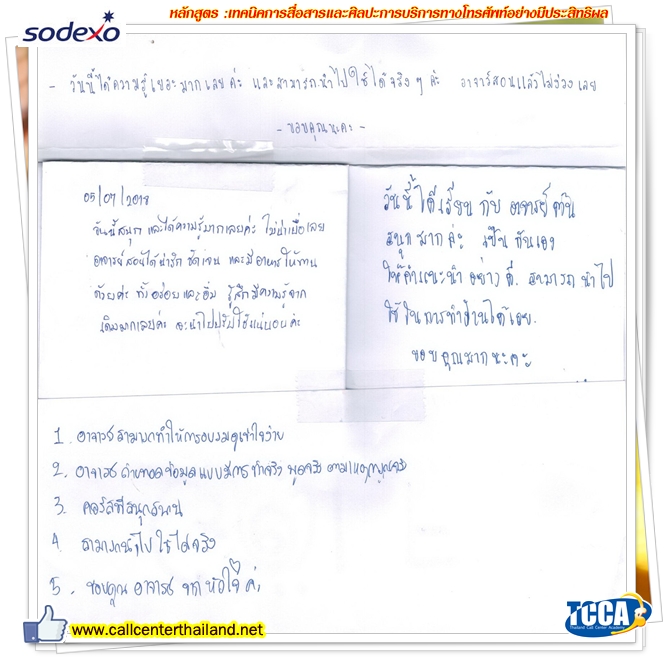 sodexo
หลักสูตร :เทคนิคการสื่อสารและศิลปะการบริการทางโทรศัพท์อย่างมีประสิทธิผล
- วันนี้ได้ความรู้เยอะมากเลยค่ะ และสามารถนำไปใช้ได้จริงๆ ค่ะ อาจารย์สอนแล้วไม่ง่วงเลย
- ขอบคุณนะคะ -
05/07/2018
วันนี้สนุก และได้ความรู้มากเลยค่ะ ไม่น่าเบื่อเลย
อาจารย์สอนได้น่ารัก ชัดเจน และมีอาหารให้ทาน
ด้วยค่ะ ทั้งอร่อยและอิ่ม รู้สึกมีความรู้จาก
เดิมมากเลยค่ะ จะนำไปปรับใช้แน่นอนค่ะ
วันนี้ได้เรียนกับ อาจารย์
สนุกมากค่ะ เป็นกันเอง
ให้คำแนะนำอย่างดี. สามารถนำไป
ใช้ในการทำงานได้เลย.
ขอบคุณมากนะคะ
1. อาจารย์สามารถทำให้การอบรมดูเข้าใจง่าย
2. อาจารย์ถ่ายทอดข้อมูลแบบมีการทำจริง พูดจริง
3. คอร์สที่สนุกสนาน
4. สามารถนำไปใช้ได้จริง
5. ขอบคุณ อาจารย์ จากหัวใจค่ะ
www.callcenterthailand.net
TCCA
Thailand Call Center Academy